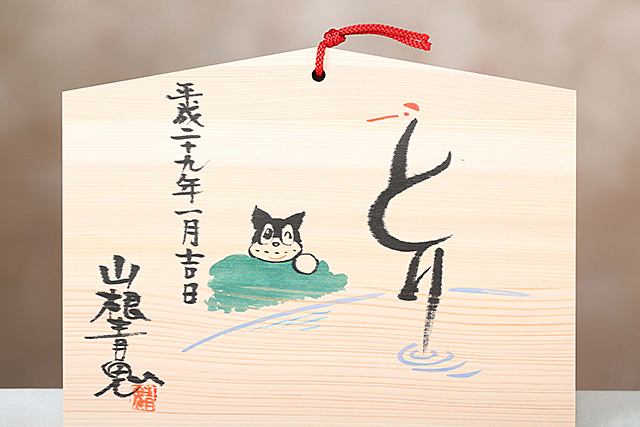 とり
平成二十九年一月吉日
山根青鬼